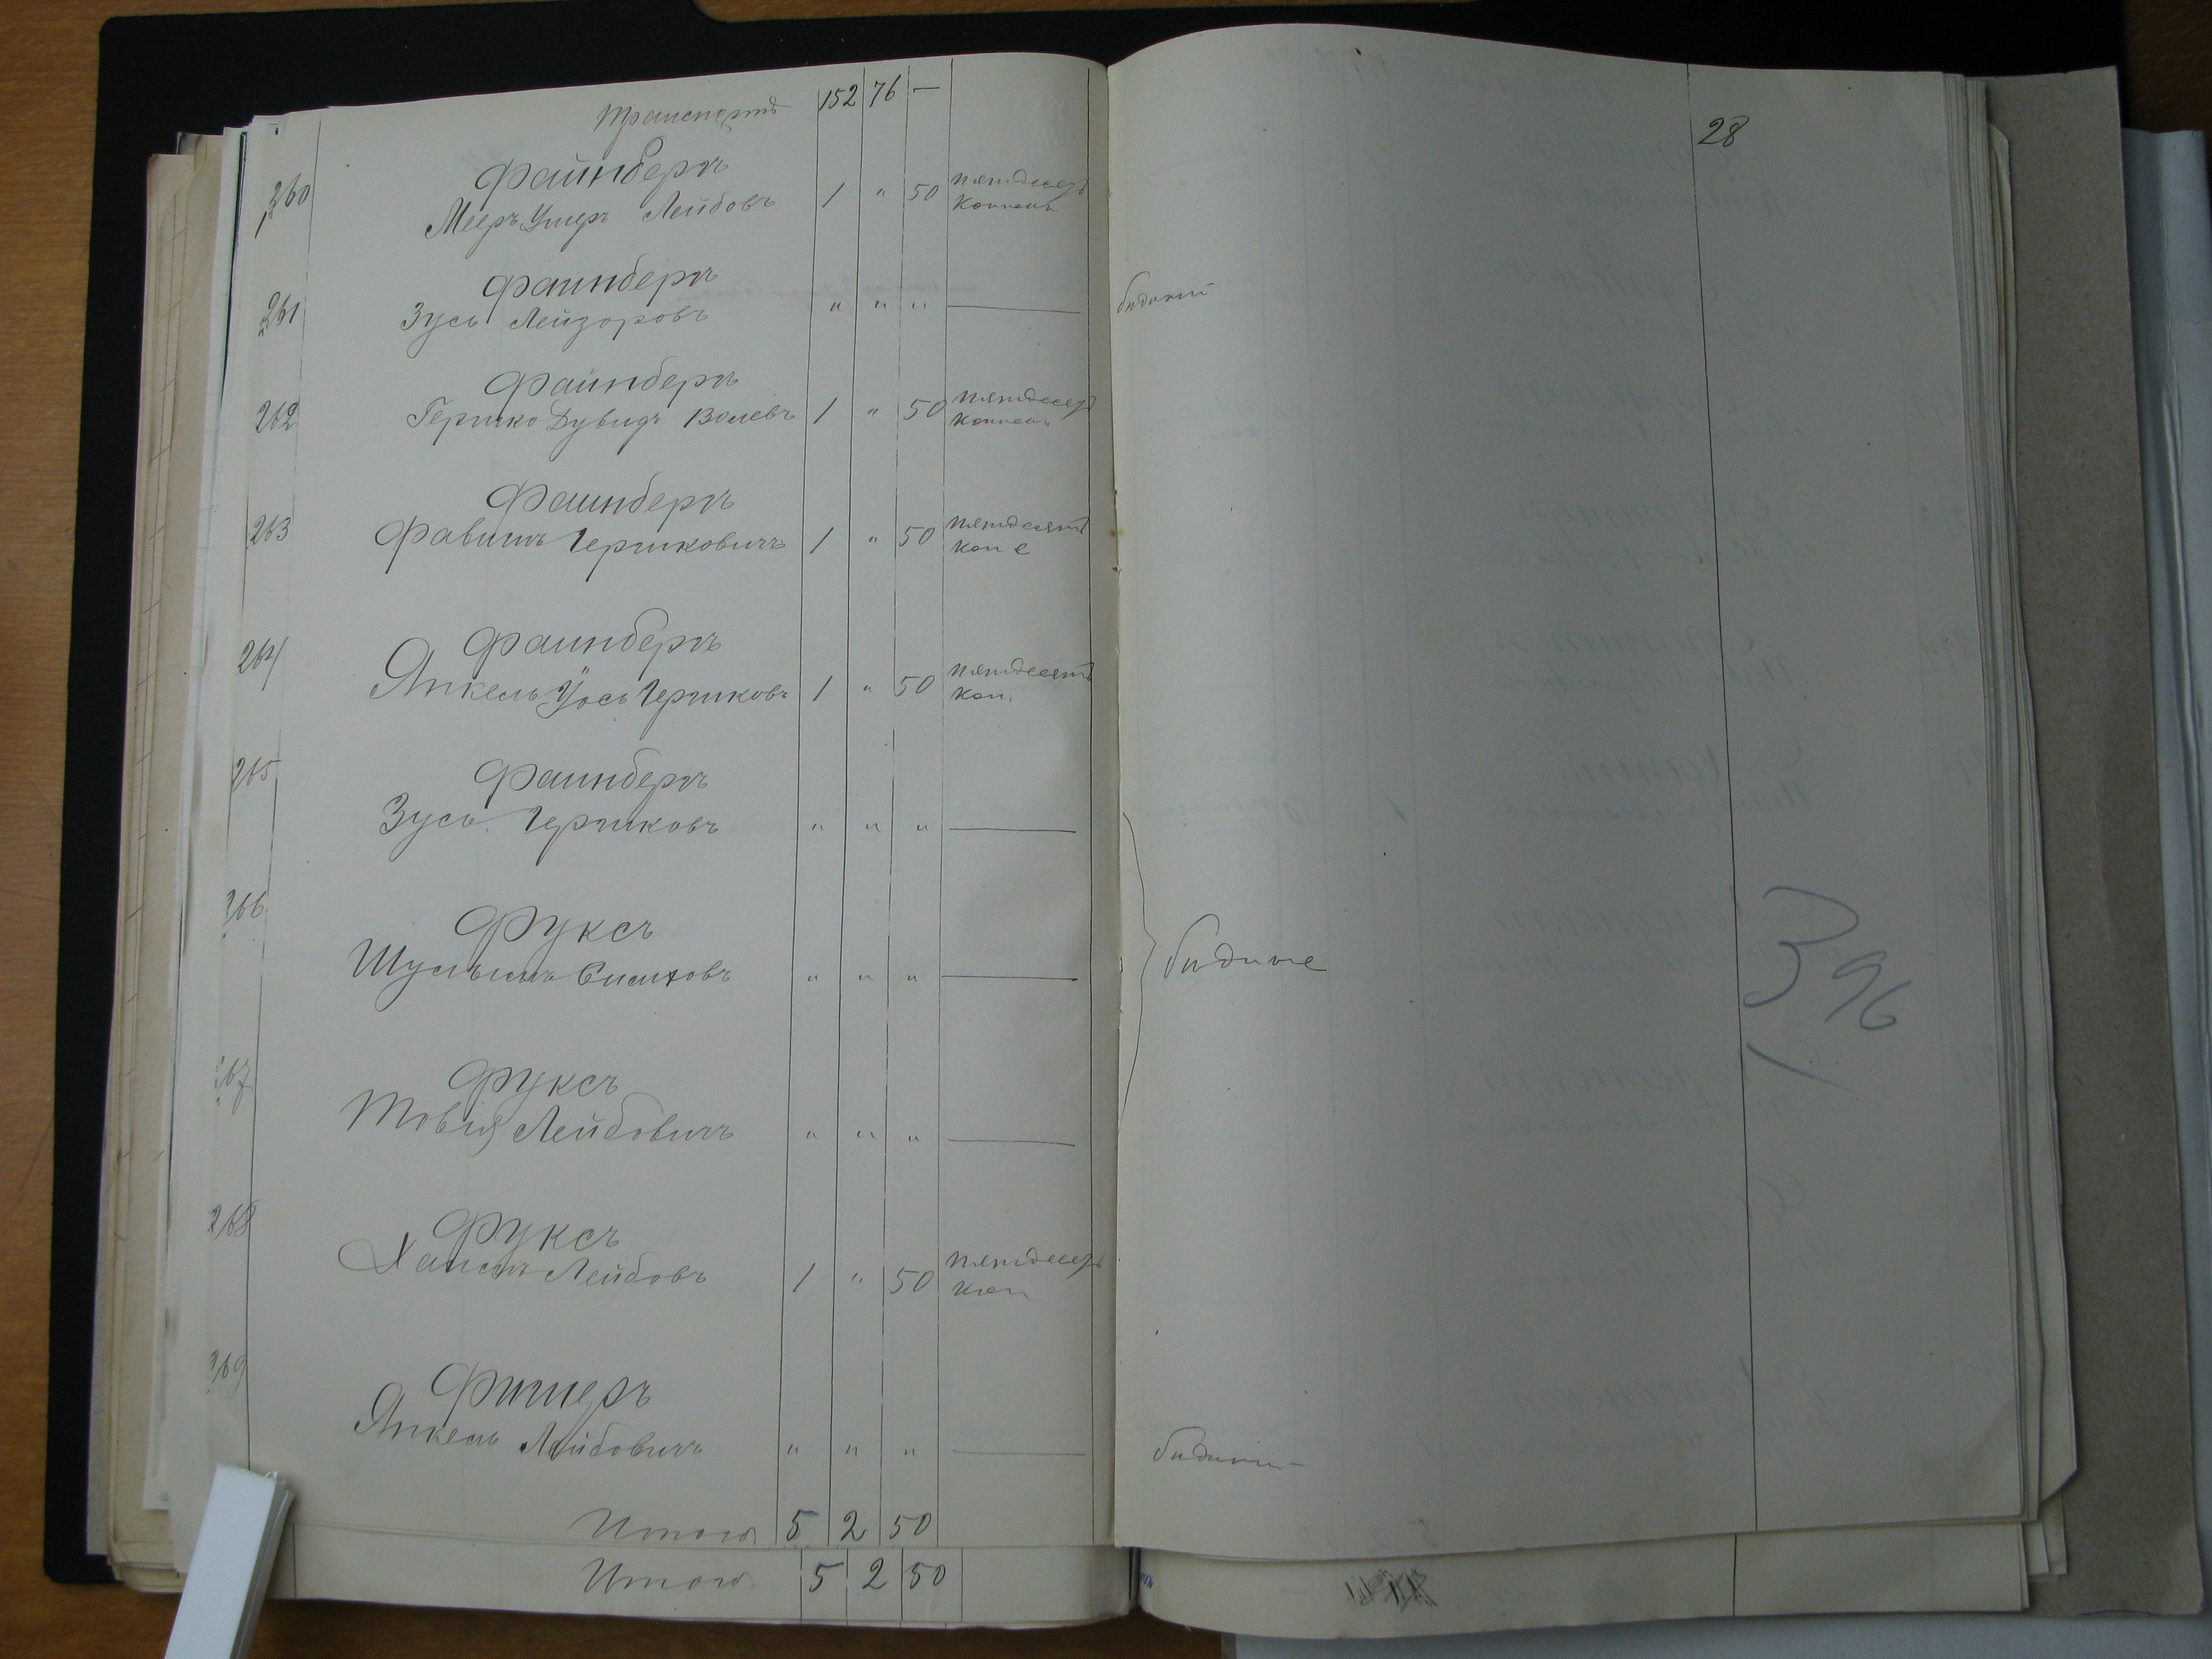 Транспортъ 152 76 —
260 Файнбергъ
Мееръ Ушеръ Лейбовъ 1 " 50 пятьдесят
копеекъ
261 Файнбергъ
Зусь Лейзоровъ " " " — бѣдный
262 Файнбергъ
Гершко Дувидъ Волевъ 1 " 50 пятьдесят
копеекъ
263 Файнбергъ
Фавишъ Гершковичъ 1 " 50 пятьдесятъ
коп е
264 Файнбергъ
Янкель Йось Гершковъ 1 " 50 пятьдесятъ
коп.
265 Файнбергъ
Зусь Гершковъ " " " —
266 Фуксъ
Шулымъ " " " — бѣдные
267 Фуксъ
Товия Лейбовичъ " " " —
268 Фуксъ
Хаимъ Лейбовъ 1 " 50 пятьдесят
коп
269 Фишеръ
Янкель Лейбовичъ " " " — бѣдный
Итого 5 2 50
Итого 5 2 50
28
396